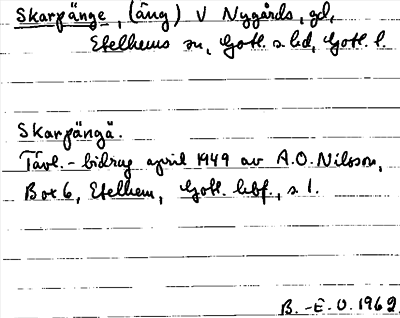 Skarpänge, (äng) V Nygårds, gd,
Etelhems sn, Gotl. s hd, Gotl. l.
Skarpängä.
Tävl.-bidrag april 1949 av A.O. Nilsson,
Box 6, Etelhem, Gotl. hbf., s 1.
B.-E.O. 1962.